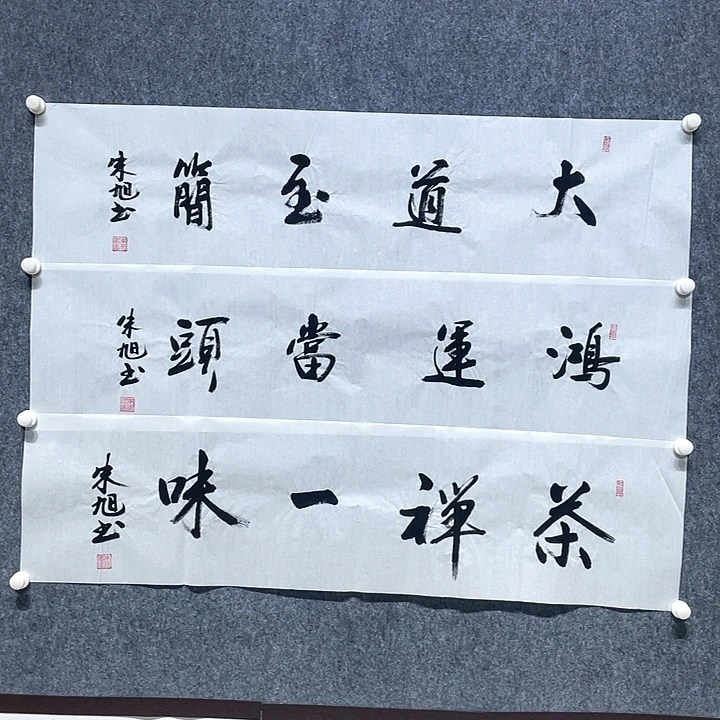 大道至簡
朱旭书
鴻運當頭
朱旭书
茶禅一味
朱旭书